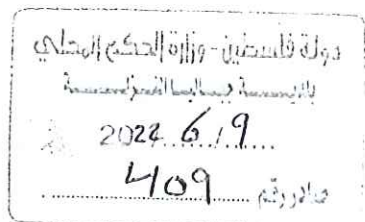 دولة فلسطين - وزارة الحكم المحلي
2022 6/9
صادر رقم 409